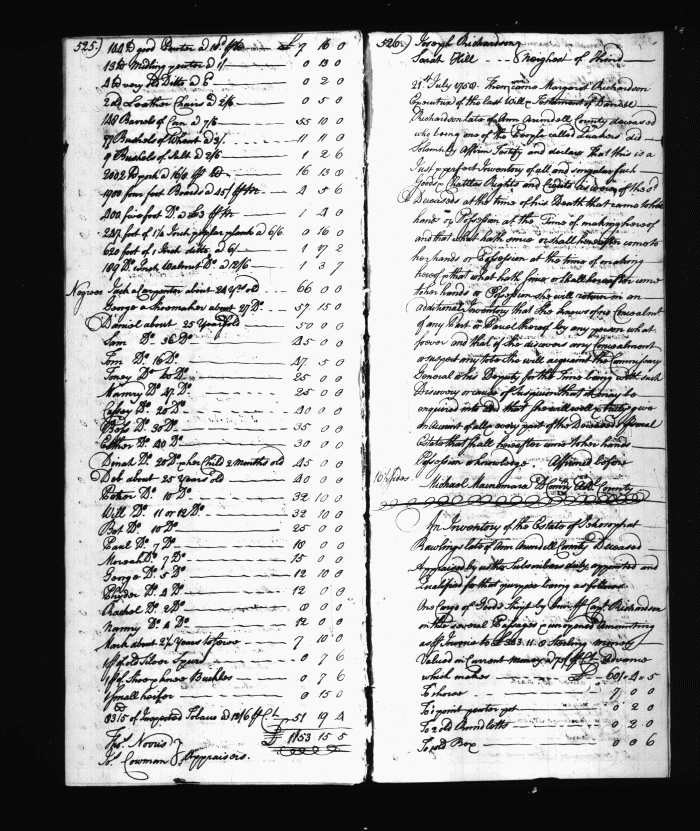 525.) 104 lb good Pewter a 18d £ 7 16 0
13 lb Midling pewter a 1/. 0 13 0
4 lb very old Ditto a 6 0 2 0
2 old Leather Chairs a 2/6 0 5 0
148 Barels of Corn a 7/6 55 10 0
77 Bushels of Wheat a 3/. 11 11 0
9 Bushels of Salt a 2/6 1 2 6
2002 lb pork a 16/8 16 13 8
1900 four foot Boards a 45/ 4 5 6
400 five foot Do. a £3 1 4 0
247 foot of 1 1/4 Inch poplar plank a 6/6 0 16 0
620 foot of 1 Inch ditto a 6/ 1 17 2
189 Do. Inch Walnut Do. a 12/6 1 3 7
Negroes Jack a Carpenter about 24 yrs old 66 0 0
George a Shoemaker about 27 Do. 57 15 0
Daniel about 25 Years old 50 0 0
Sam Do. 36 Do. 45 0 0
Tom Do. 16 Do. 47 5 0
Toney Do. Do. 25 0 0
Nanny Do. 47 Do. 25 0 0
Do. 20 Do. 40 0 0
Do. 30 Do. 35 0 0
Esther Do. 40 Do. 30 0 0
Dinah Do. 20 Do. & her Child 2 months old 45 0 0
Deb about 25 Years old 40 0 0
Peter Do. 10 Do. 32 10 0
Will Do. 11 or 12 Do. 32 10 0
Bet Do. 10 Do. 25 0 0
Paul Do. 7 Do. 18 0 0
Do. 7 Do. 15 0 0
George Do. 5 Do. 12 10 0
Do. 4 Do. 12 0 0
Rachel Do. 2 Do. 8 0 0
Nanny Do. 4 Do. 12 0 0
Mark about 2 1/2 Years to serve 7 10 0
1 pr of old Silver Spurs 0 7 6
1 pr of Shoe & knee Buckles 0 7 6
1 Small heifer 0 15 0
8315 of Inspected Tobacco a 12/6 51 19 4
£ 1153 15 5
Thos. Norris
Cowman } Appraisers.
526.) Joseph Richardson
Sarah Hill } Nighest of Kind
21st July 1750. Then came Margaret Richardson
Executrix of the last Will & Testament of Daniel
Richardson late of Ann Arundell County deceased
who being one of the People called Quakers did
Solemnly Affirm Testify and declare that this is a
Just & perfect Inventory of all and singular
Goods Chattles Rights and Credits of the sd
Deceased at the time of his Death that came to her
hands or Possession at the Time of making hereof
and that what hath since or shall hereafter come to
her hands or Possession at the time of making
hereof & that what hath since or shall hereafter come
to her hands or Possession she will return in an
additional Inventory that she knows of no Concealment
of any Part or Parcel thereof by any person what
soever and that if she discovers any Concealment
or suspect any to be she will acquaint the Commissary
General or his Deputy for the Time being with such
Discovery or cause of Suspicion that it may be
enquired into and that she will well & truly give
an Account of all & every part of the Deceased's personal
Estate that shall hereafter come to her hands
Possession or knowledge Affirmed before
10 1/2 sides Michael Macnemara D Comry A.A. County
An Inventory of the Estate of Jehosophat
Rawlings late of Ann Arundell County Deceased
Appraised by us the Subscribers duly appointed and
Qualified for that purpose being as follows
One Cargo of Goods Shipt by Wm. & Capt. Richardson
in the several Packages unopened Amounting
as Pr Invoice to £ 343.11.8 Sterling money
Valued in Current money a 75 Pr Ct. Advance
which makes £ 601.4.5
To 1 horse 7 0 0
To 1 point pewter pot 0 2 0
To 2 old 0 2 0
To 1 old Box 0 0 6